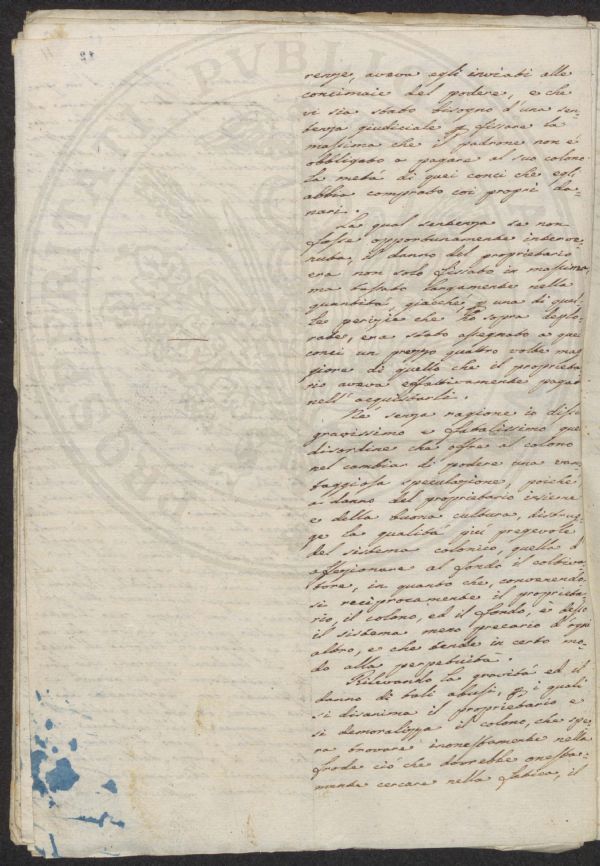 renze, aveva egli inviati alle
concimaie del podere, e che
vi sia stato bisogno d'una sen-
tenza giudiciale p fissare la
massima che il padrone non è
obbligato a pagare al suo colono
la metà di quei conci che egli
abbia comprato coi proprj da-
nari.
La qual sentenza se non
fosse opportunamente interve-
nuta, il danno del proprietario
era non solo fissato in massima,
ma tassato largamente nella
quantità, giacché p una di quel-
le perizie che ho sopra deplo-
rate, era stato assegnato a quei
conci un prezzo quattro volte mag
giore di quello che il proprieta-
rio aveva effettivamente pagat
nell'acquistarli.
Né senza ragione io dissi
gravissimo e fatalissimo quel
disordine che offre al colono
nel cambiar di podere una van-
taggiosa speculazione, poiché
a danno del proprietario insieme
e della buona cultura, distrug-
ge la qualità più pregevole
del sistema colonico, quella d'
affezionare al fondo il coltiva-
tore, in quanto che, convenendo-
si reciprocamente il proprieta-
rio, il colono, ed il fondo, è desso
il sistema meno precario d'ogni
altro, e che tende in certo mo-
do alla perpetuità.
Rilevando la gravità ed il
danno di tali abusi, p i quali
si disanima il proprietario e
si demoralizza il colono, che spe-
ra trovare inonestamente nella
frode ciò che dovrebbe onesta-
mente cercare nella fatica, il
12
PROSPERITATI PUBLICAE